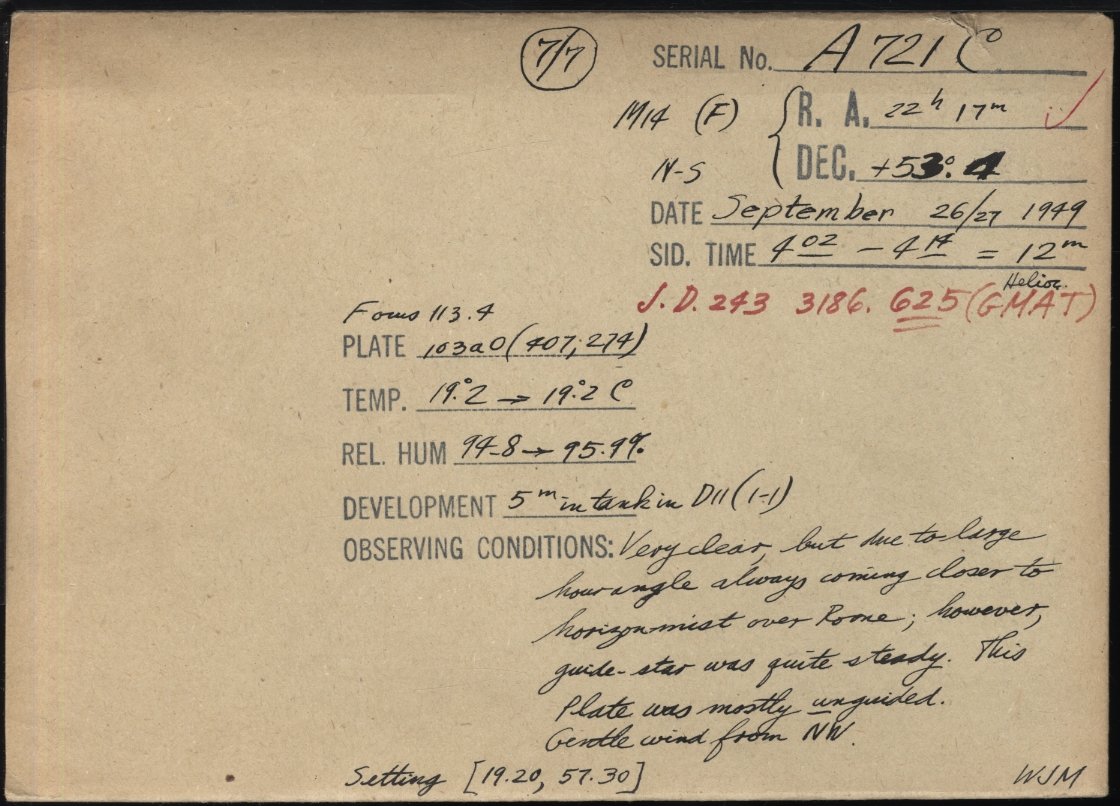 7/7
SERIAL No. A 721 C
M14 (F) { R. A. 22ʰ 17ᵐ ✓
N-S DEC. +53°.4
DATE September 26/27 1949
SID. TIME 4 02 – 4 14 = 12ᵐ
Helioc.
J.D. 243 3186.625 (GMAT)
Focus 113.4
PLATE 103aO (407, 274)
TEMP. 19°.2 → 19°.2 C
REL. HUM 94.8 → 95.9%
DEVELOPMENT 5ᵐ in tank in D11 (1-1)
OBSERVING CONDITIONS: Very clear, but due to large
hour angle always coming closer to
horizon mist over Rome; however,
guide-star was quite steady. This
Plate was mostly unguided.
Gentle wind from NW.
Setting [19.20, 57.30]
WJM